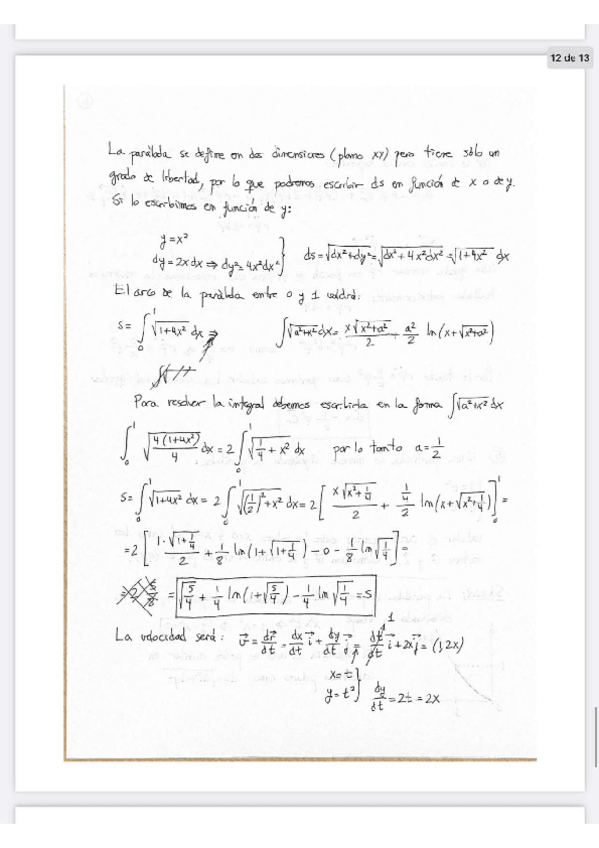 12 de 13
La parábola se define en dos dimensiones (plano XY) pero tiene sólo un
grado de libertad, por lo que podremos escribir ds en función de x o de y.
Si lo escribimos en función de y:
y = x²
dy = 2x dx ⇒ dy² = 4x²dx² } ds = √(dx²+dy²) = √(dx²+4x²dx²) = √(1+4x²) dx
El arco de la parábola entre 0 y 1 valdrá:
s = ∫₀¹ √(1+4x²) dx ⇒ ∫√(a²+x²) dx = x√(x²+a²)/2 + a²/2 ln(x+√(x²+a²))
Para resolver la integral debemos escribirla en la forma ∫√(a²+x²) dx
∫₀¹ √(4(1+4x²)/4) dx = 2∫₀¹ √(1/4 + x²) dx por lo tanto a = 1/2
s = ∫₀¹ √(1+4x²) dx = 2∫₀¹ √((1/2)²+x²) dx = 2[x√(x²+1/4)/2 + (1/4)/2 ln(x+√(x²+1/4))]₀¹ =
= 2[1·√(1+1/4)/2 + 1/8 ln(1+√(1+1/4)) − 0 − 1/8 ln√(1/4)] =
= √(5/4) + 1/4 ln(1+√(5/4)) − 1/4 ln√(1/4) = s
La velocidad será: v⃗ = dr⃗/dt = dx/dt i⃗ + dy/dt j⃗ = dx/dt i⃗ + 2x j⃗ = (1,2x)
1
x = t
y = t² } dy/dt = 2t = 2x